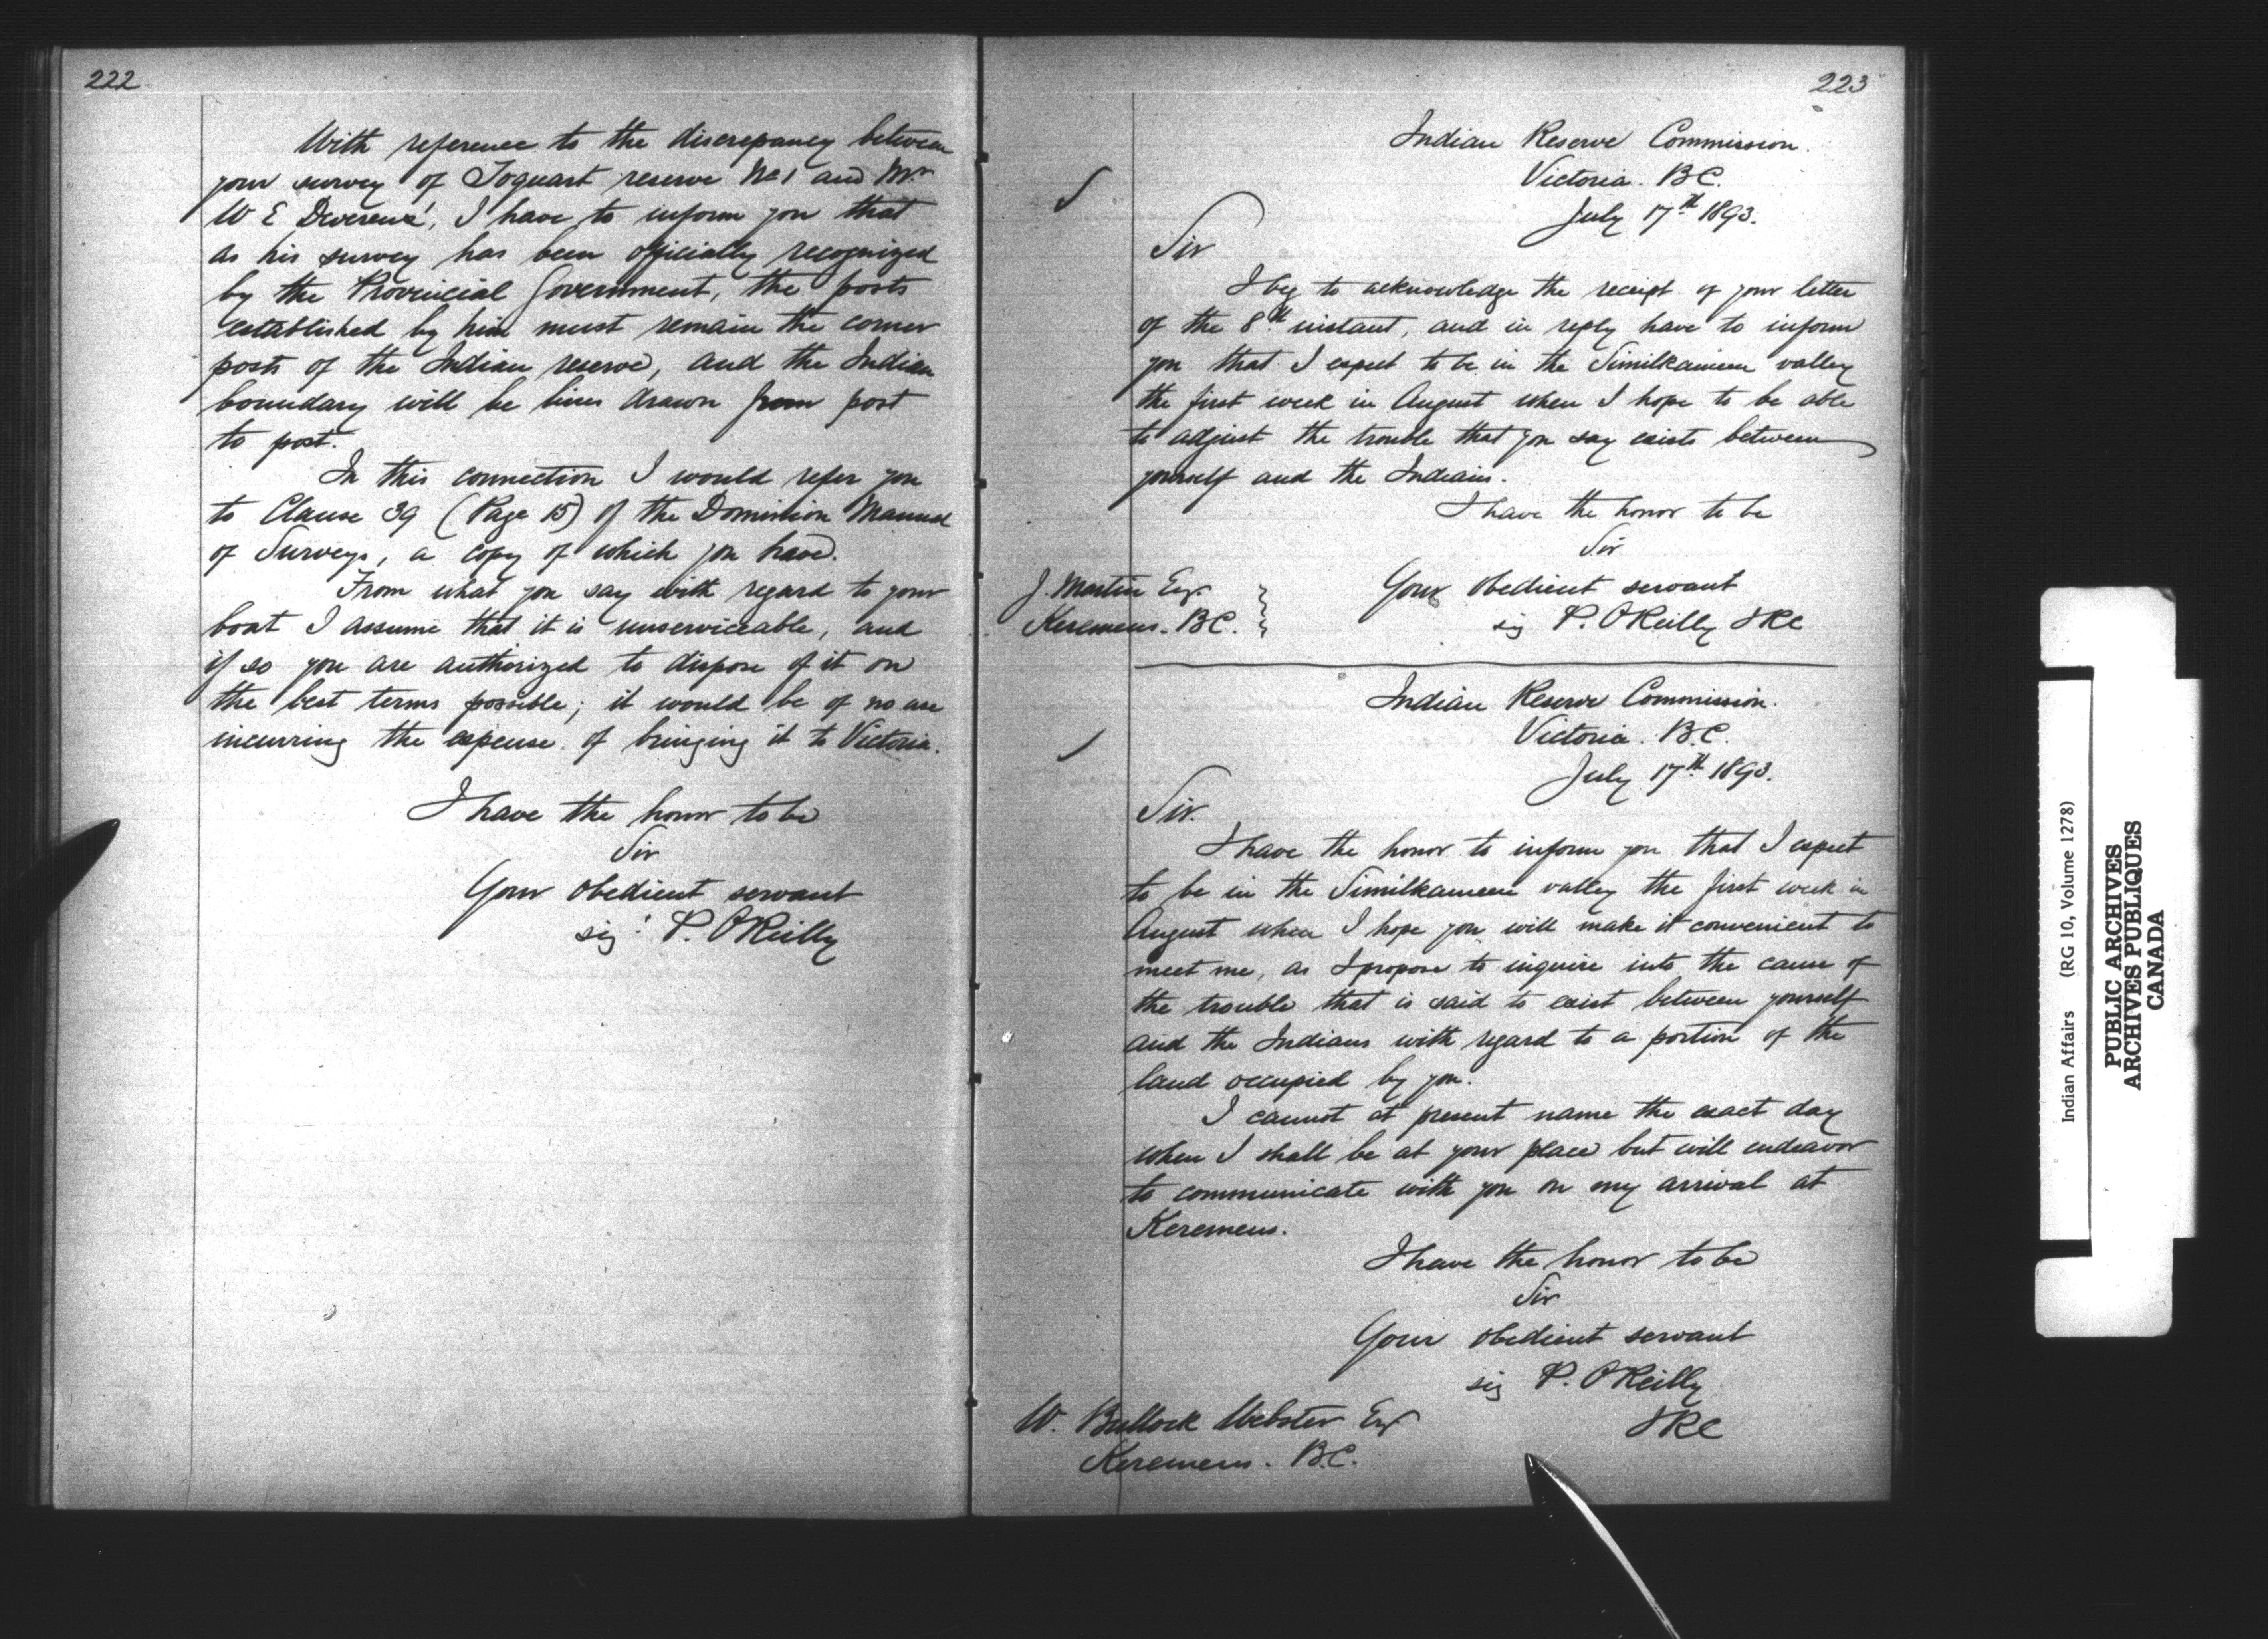 222
With reference to the discrepancy between
your survey of Toquart reserve No 1 and Mr
W E Devereux', I have to inform you that
as his survey has been officially recognized
by the Provincial Government, the posts
established by him must remain the corner
posts of the Indian reserve, and the Indian
boundary will be lines drawn from post
to post.
In this connection I would refer you
to Clause 39 (Page 15) of the Dominion Manual
of Surveys, a copy of which you have.
From what you say with regard to your
boat I assume that it is unserviceable, and
if so you are authorized to dispose of it on
the best terms possible; it would be of no use
incurring the expense of bringing it to Victoria.
I have the honor to be
Sir
Your obedient servant
sig: P. O'Reilly
223
Indian Reserve Commission.
Victoria. B.C.
July 17th 1893.
Sir
I beg to acknowledge the receipt of your letter
of the 8th instant, and in reply have to inform
you that I expect to be in the Similkameen valley
the first week in August when I hope to be able
to adjust the trouble that you say exists between
yourself and the Indians.
I have the honor to be
Sir
Your obedient servant
sig P. O'Reilly IRC
J. Martin Esq.
Keremeos. B.C.
Indian Reserve Commission.
Victoria. B.C.
July 17th 1893.
Sir.
I have the honor to inform you that I expect
to be in the Similkameen valley the first week in
August when I hope you will make it convenient to
meet me, as I propose to inquire into the cause of
the trouble that is said to exist between yourself
and the Indians with regard to a portion of the
land occupied by you.
I cannot at present name the exact day
when I shall be at your place but will endeavor
to communicate with you on my arrival at
Keremeos.
I have the honor to be
Sir
Your obedient servant
sig P. O'Reilly
IRC
W. Bullock Webster Esq
Keremeos. B.C.
Indian Affairs (RG 10, Volume 1278)
PUBLIC ARCHIVES
ARCHIVES PUBLIQUES
CANADA